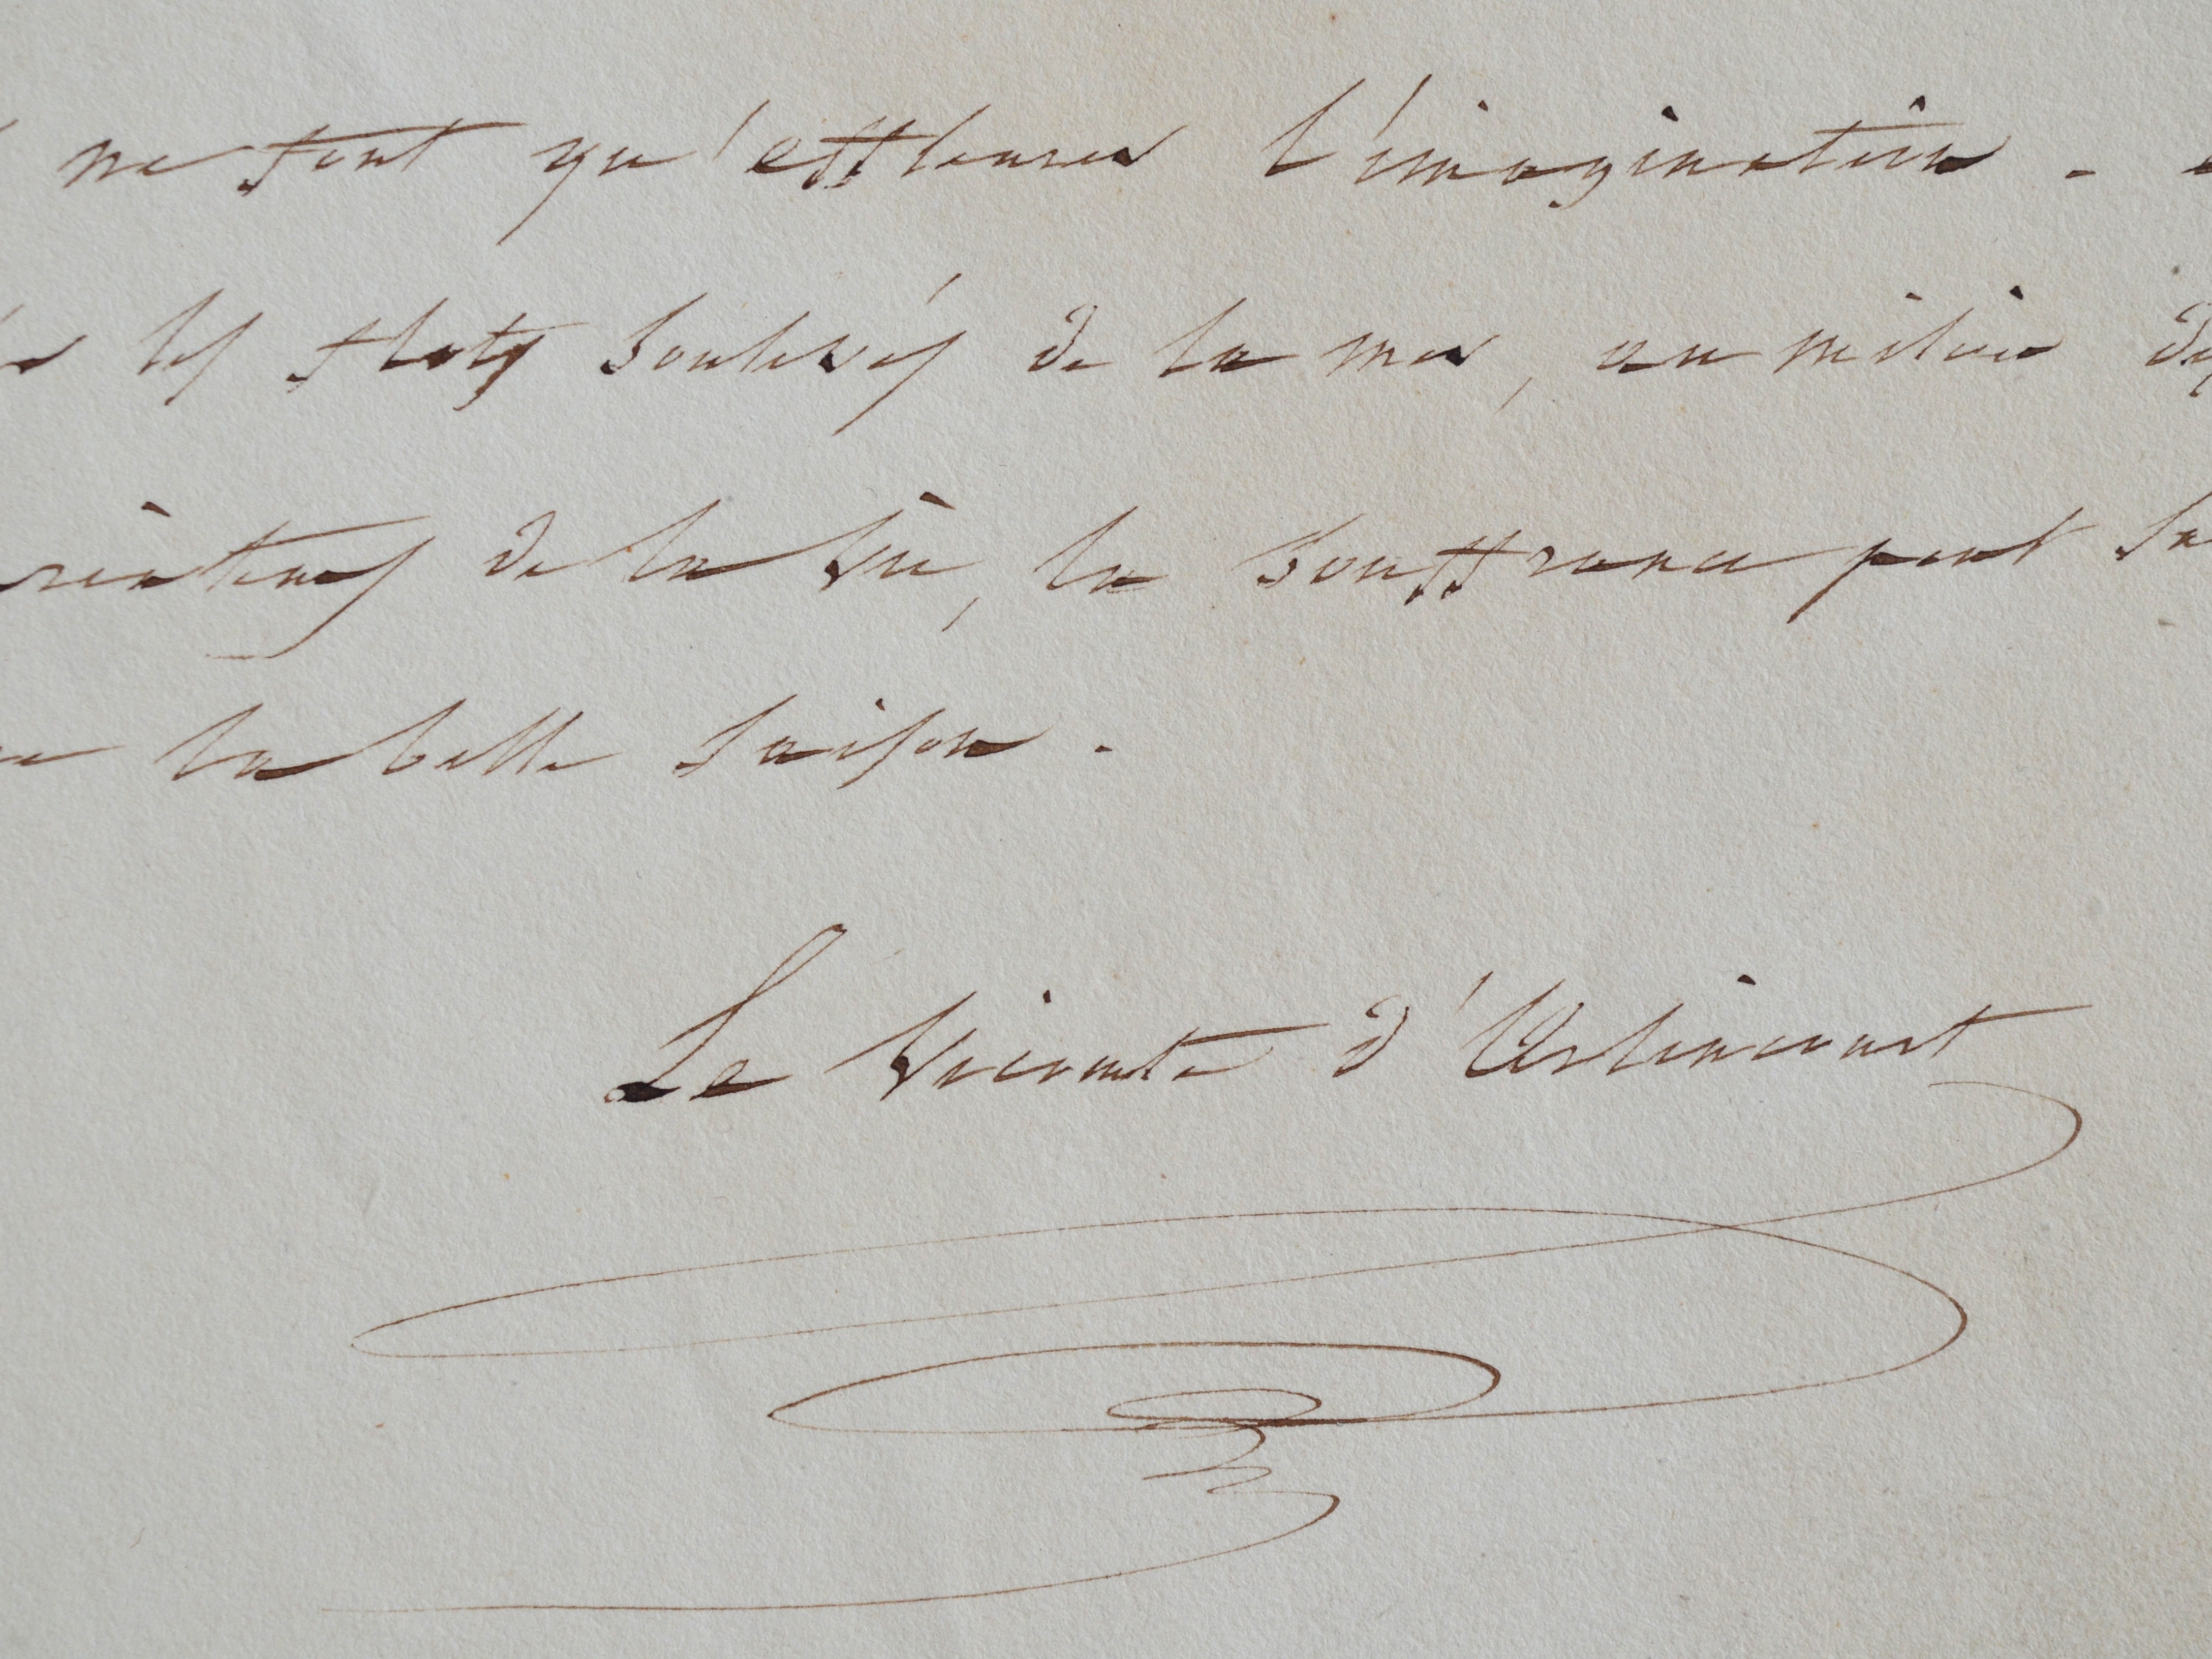 ne font qu'effleurer l'imagination -
les flots soulevés de la mer, au milieu des
de la vie, la souffrance peut
la belle saison.
Le Vicomte d'Arlincourt